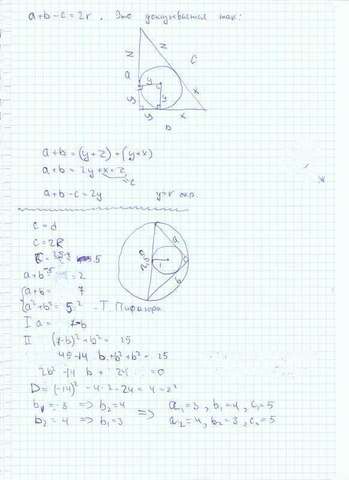 a+b-c=2r. Это доказывается так:
z
z
a
c
y
y
y
x
x
b
a+b=(y+z)+(y+x)
a+b=2y+x+z
c
a+b-c=2y
y=r окр.
c=d
c=2R
a
b
a+b-5=2
a+b=7
a²+b²=5² Т. Пифагора.
I a=7-b
II (7-b)²+b²=25
49-14b+b²+b²=25
2b²-14b+24=0
D=(-14)²-4·2·24=4=2²
b₁=3 => b₂=4
b₂=4 => b₁=3
=>
a₁=3, b₁=4, c₁=5
a₂=4, b₂=3, c₂=5